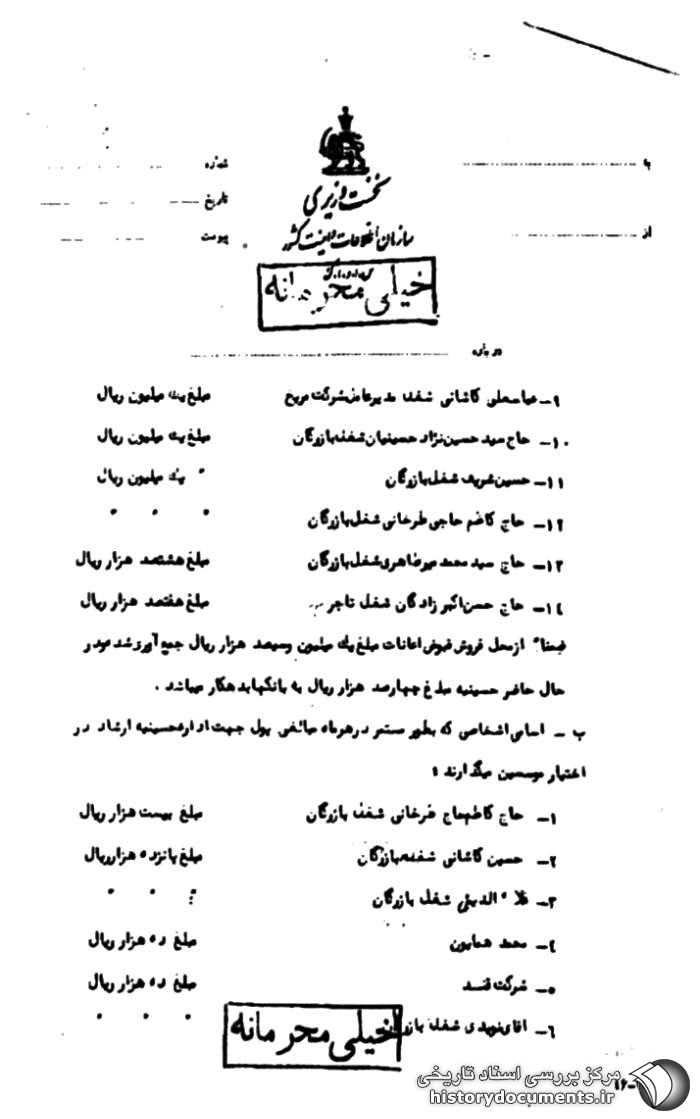 شماره
تاریخ
پیوست
به
از
نخست وزیری
سازمان اطلاعات و امنیت کشور
س.ا.و.ا.ک
خیلی محرمانه
درباره
۹- عباسعلی کاشانی شغل مدیرعامل شرکت مریخ مبلغ یک ملیون ریال
۱۰- حاج سید حسین نژاد حسینیان شغل بازرگان مبلغ یک ملیون ریال
۱۱- حسین شریف شغل بازرگان " یک ملیون ریال
۱۲- حاج کاظم حاجی طرخانی شغل بازرگان " " "
۱۳- حاج سید محمد میرطاهری شغل بازرگان مبلغ هشتصد هزار ریال
۱۴- حاج حسن اکبر زادگان شغل تاجر مبلغ هفتصد هزار ریال
ضمنا" از محل فروش قبوض اعانات مبلغ یک ملیون و سیصد هزار ریال جمع آوری شده و در
حال حاضر حسینیه مبلغ چهارصد هزار ریال به بانکها بدهکار میباشد .
ب - اسامی اشخاصی که بطور مستمر در هر ماه مبالغی پول جهت اداره حسینیه ارشاد در
اختیار موسسین میگذارند :
۱- حاج کاظم حاج طرخانی شغل بازرگان مبلغ بیست هزار ریال
۲- حسین کاشانی شغل بازرگان مبلغ پانزده هزار ریال
۳- علاء الدینی شغل بازرگان " " "
۴- محمد همایون مبلغ ده هزار ریال
۵- شرکت قند مبلغ ده هزار ریال
۶- آقای نویدی شغل بازرگان " " "
خیلی محرمانه
۱۶-
مرکز بررسی اسناد تاریخی
historydocuments.ir